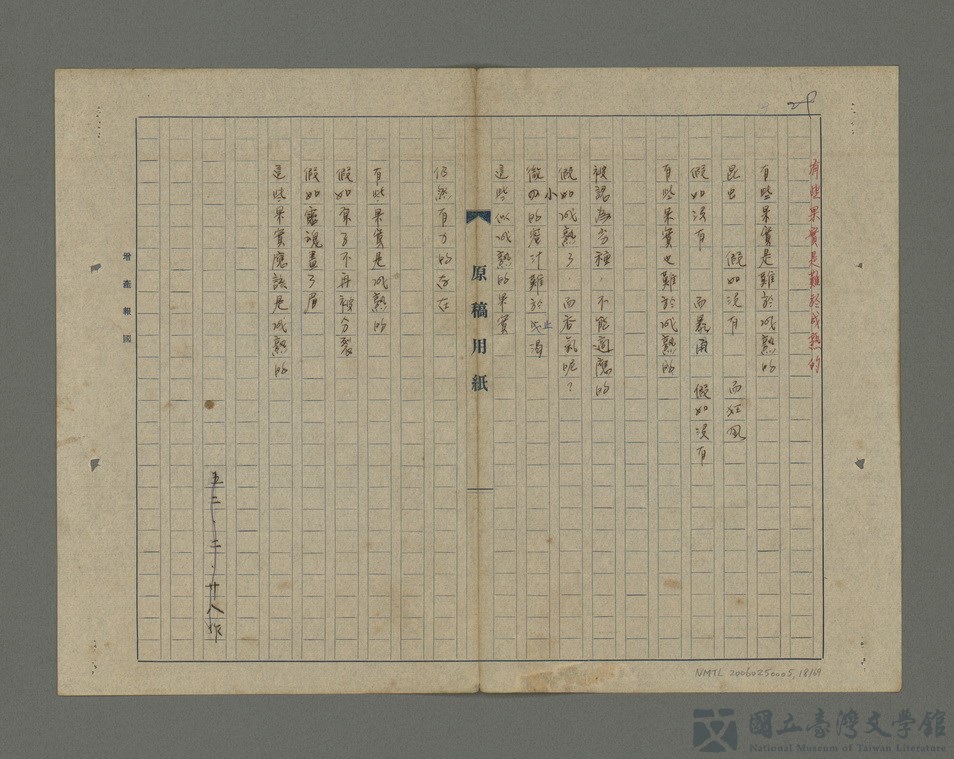 29
有些果實是難於成熟的
有些果實是難於成熟的
昆虫　　假如沒有　　而狂風
假如沒有　　而暴雨　假如沒有
有些果實也難於成熟的
被認為劣種，不能適應的
假如成熟了　而香氣呢？
微小的蜜汁難於止渴
這些似成熟的果實
仍然有力的存在
有些果實是成熟的
假如果子不再被分裂
假如靈魂盡了眉
這些果實應該是成熟的
五二、二、廿八作
原稿用紙
增產報國
NMTL 20060250005, 18/69
國立臺灣文學館
National Museum of Taiwan Literature